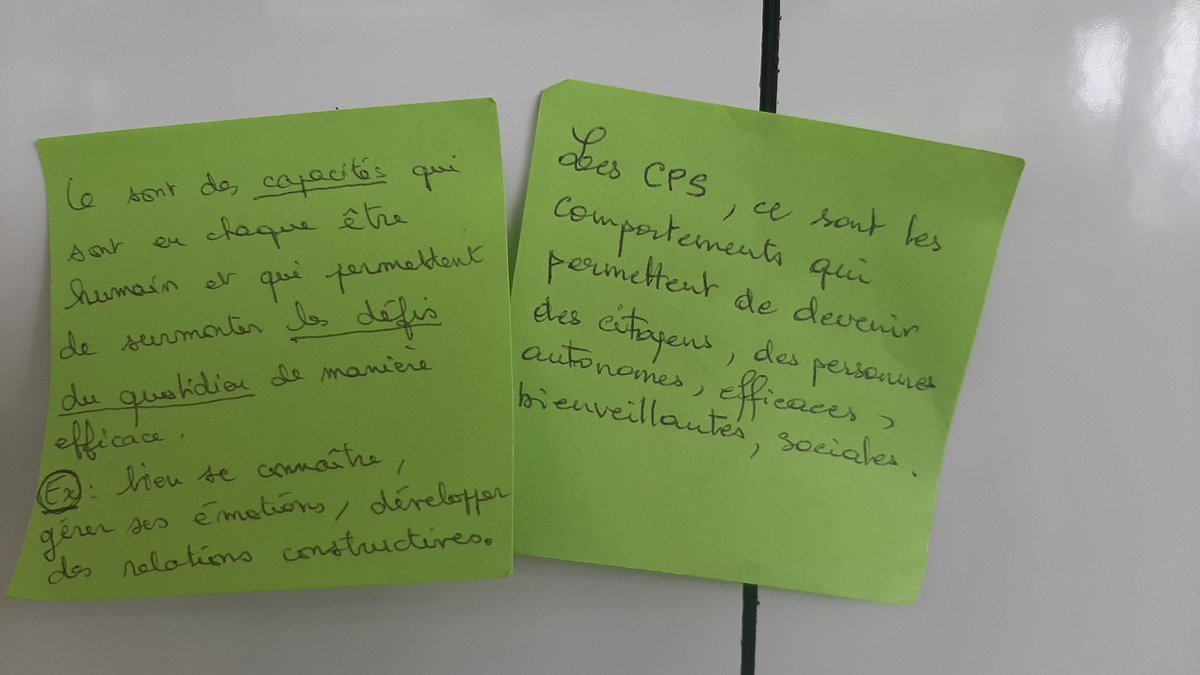 Ce sont des capacités qui
sont en chaque être
humain et qui permettent
de surmonter les défis
du quotidien de manière
efficace.
Ex : bien se connaître,
gérer ses émotions, développer
des relations constructives.
Les CPS, ce sont les
comportements qui
permettent de devenir
des citoyens, des personnes
autonomes, efficaces,
bienveillantes, sociales.